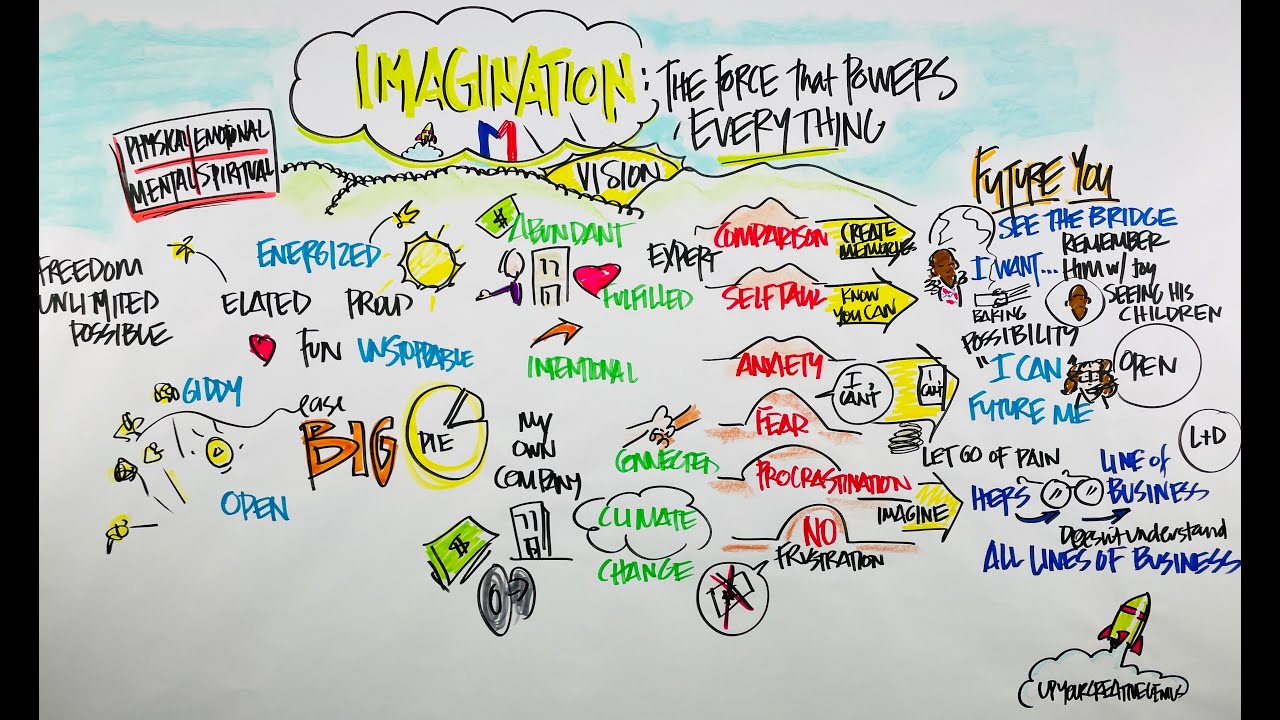 IMAGINATION: THE FORCE THAT POWERS
EVERYTHING
PHYSICAL EMOTIONAL
MENTAL SPIRITUAL
M
VISION
FREEDOM
UNLIMITED
POSSIBLE
ENERGIZED
ELATED
PROUD
FUN
UNSTOPPABLE
GIDDY
ease
BIG
PIE
OPEN
$
ABUNDANT
FULFILLED
INTENTIONAL
MY
OWN
COMPANY
CONNECTED
CLIMATE
CHANGE
$
EXPERT
COMPARISON
CREATE
MEMORIES
SELF TALK
KNOW
YOU CAN
ANXIETY
I
CAN'T
I
CAN'T
FEAR
PROCRASTINATION
IMAGINE
NO
FRUSTRATION
FUTURE YOU
SEE THE BRIDGE
I WANT...
REMEMBER
HIM W/ JOY
BAKING
SEEING HIS
CHILDREN
POSSIBILITY
"I CAN
OPEN
FUTURE ME
L+D
LET GO OF PAIN
HERS
LINE OF
BUSINESS
Doesn't understand
ALL LINES OF BUSINESS
UPYOURCREATIVEGENIUS